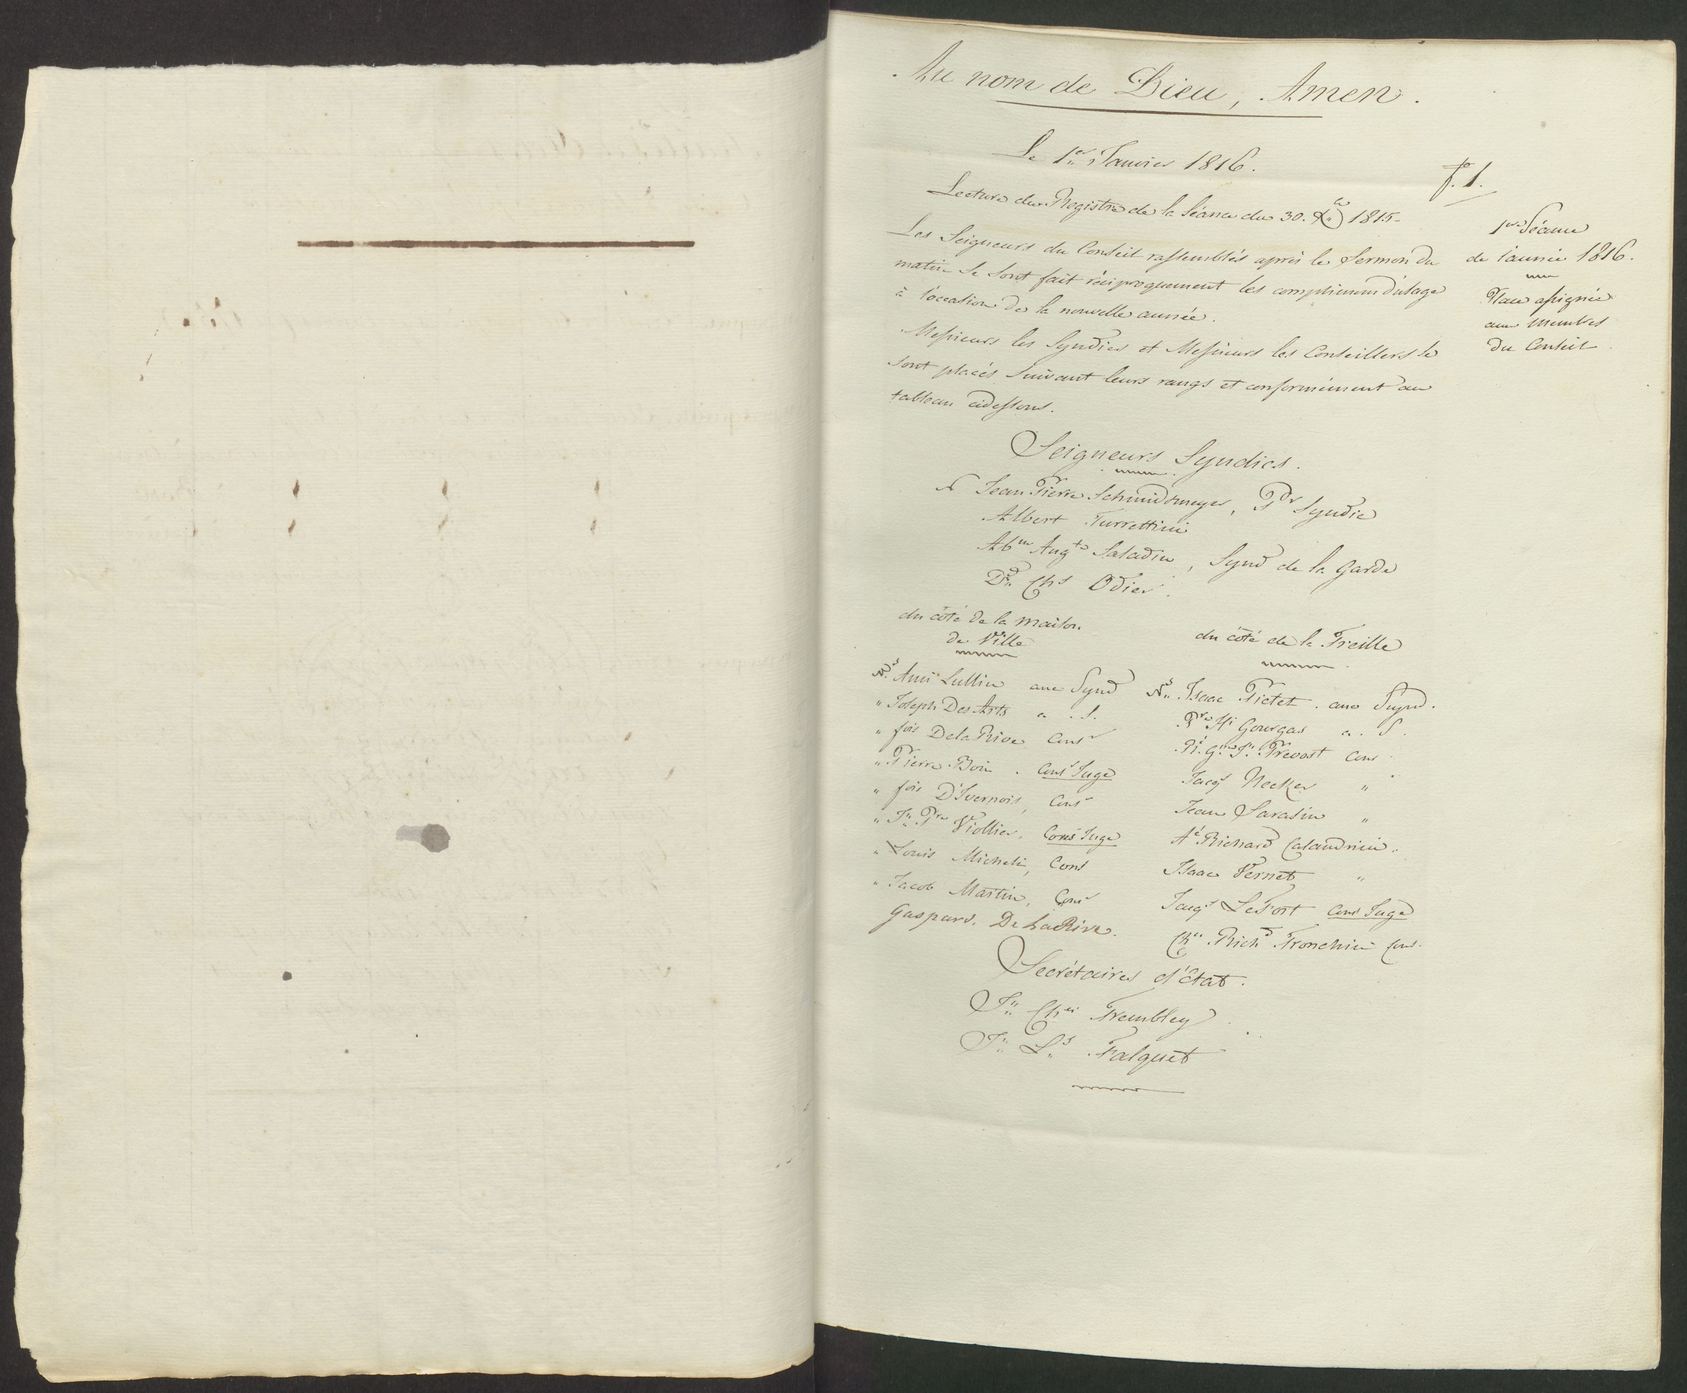 Au nom de Dieu, Amen.
Le 1er Janvier 1816.
f. 1.
Lecture du Registre de la Séance du 30. Xbre 1815.
Les Seigneurs du Conseil rassemblés après le Sermon du
matin se sont fait réciproquement les complimens d'usage
à l'occasion de la nouvelle année.
Messieurs les Syndics et Messieurs les Conseillers se
sont placés suivant leurs rangs et conformément au
tableau cidessous.
1ere Séance
de l'année 1816.
Place assignée
aux membres
du Conseil
Seigneurs Syndics.
N Jean Pierre Schmidtmeyer, Pr Syndic
Albert Turrettini
Abm Augte Saladin, Synd de la Garde
Dd Chs Odier.
du côté de la maison
de Ville
Ns Ami Lullin anc Synd
" Joseph Des Arts a. S.
" fois De la Rive Consr
" Pierre Boin. Cons Juge
" fois D'Ivernois, Consr
" Jn Pre Viollier, Cons Juge
" Louis Micheli, Cons
" Jacob Martin, Consr
Gaspard. De LaRive.
du côté de la Treille
Ns. Isaac Pictet. anc Synd.
Pre Hi Gourgas a. S.
Prevost Cons
Jacqs Necker "
Jean Sarasin "
Ae Richard Calandrini "
Isaac Vernet "
Jaqs LeFort Cons Juge
Ches Richd Tronchin Cons.
Secrétaires d'État.
Jn Ches Trembley
Jn Ls Falquet